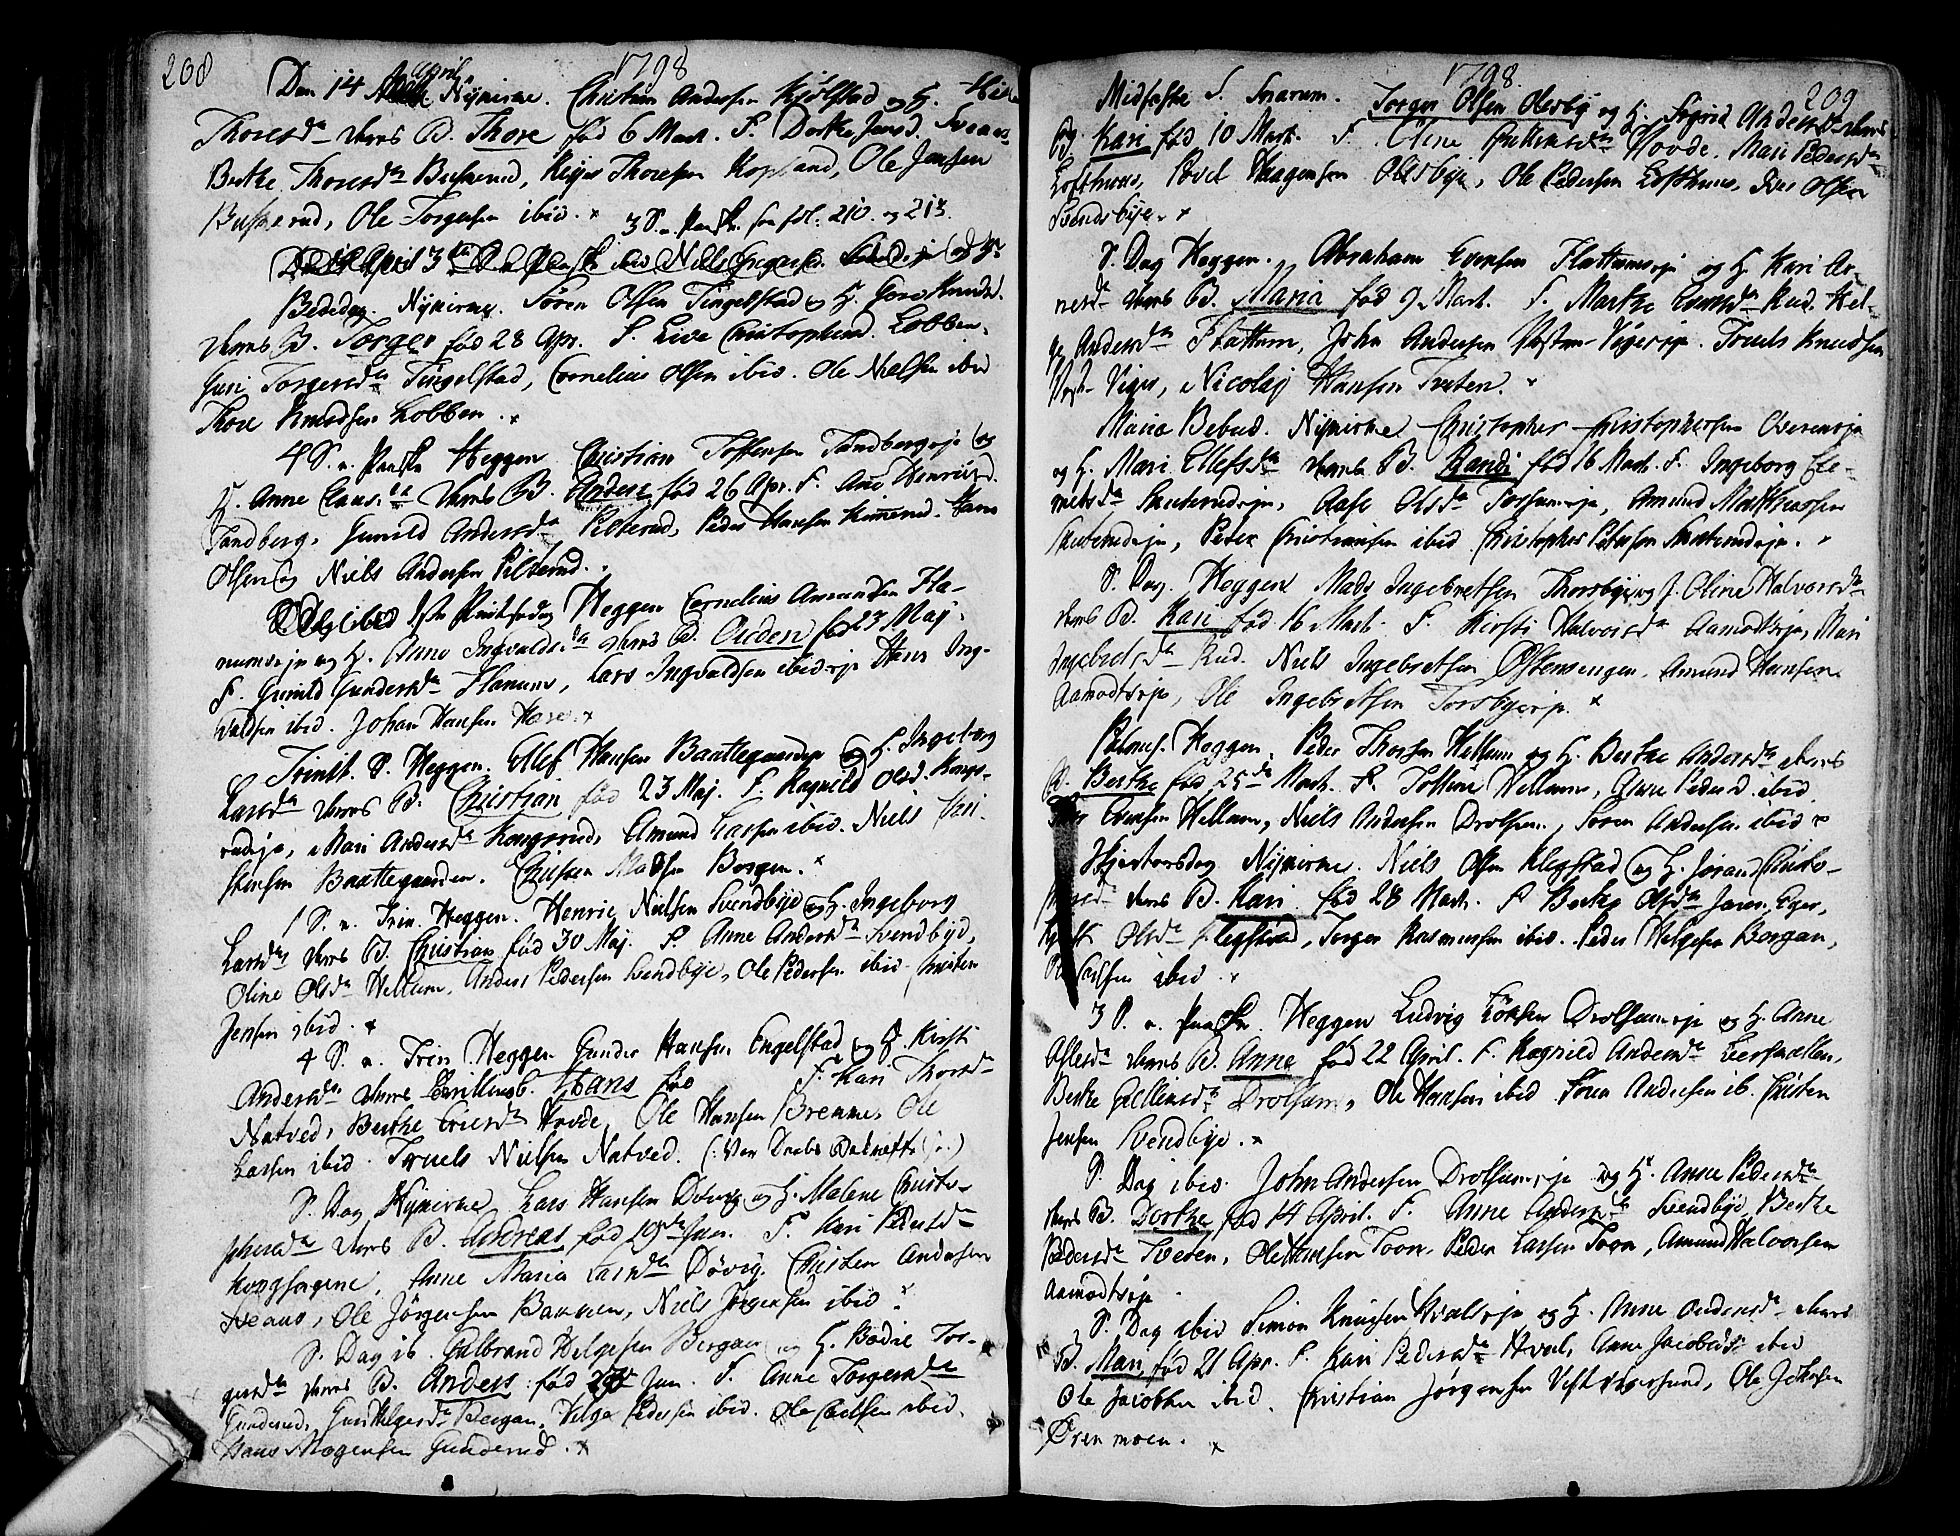 208
1798
Den 14 April Nykirke. Christian Andersen Kjølstad og H. Hille
Thoresda deres B. Thore fød 6 Mart. F. Dorthe Jensd. Sveaas
Berthe Thoresda Buskerud, Thoresen Kopland, Ole Jensen
Buskerud, Ole Torgersen ibid. x 3 S. p. Paaske see fol. 210. og 213.
Bededag. Nykirke. Søren Olsen Tingelstad og H. Goro Knudsd.
deres B. Torger fød 28 Apr. F. Live Christophersd. Lobben.
Guri Torgersda Tingelstad, Cornelius Olsen ibid. Ole Nielsen ibid
Thore Knudsen Lobben. x
4 S. p. Paaske Heggen Christian Tostensen Sandbergeje og
H. Anne Clausda deres B. Anders fød 26 Apr. F. Ane Henricsd.
Sandberg. Gunild Andersda Pilterud, Peder Hansen Kimerud. Hans
Olsen og Niels Andersen Pilterud.
ibid 1ste Pintsedag Heggen Cornelius Amundsen Fla-
numseje og H. Anne Ingvaldsda deres B. Ouden fød 23 Maj.
F. Gunild Gundersda Flanum, Lars Ingvaldsen ibid eje Hans Ing-
valdsen ibid. Johan Hansen Hære. x
Trinit. S. Heggen. Ellef Hansen Baattegaarden og H. Ingeborg
Larsda deres B. Christian fød 23 Maj. F. Ragnild Olsd. Kongs-
rudeje, Mari Andersda Kongsrud, Amund Larsen ibid. Niels Chri-
stensen Baattegaarden. Christen Madsen Borgen. x
1 S. p. Trin. Heggen. Henric Nielsen Svendbye og H. Ingeborg
Larsda deres B. Christian fød 30 Maj. F. Anne Andersda Svendbye,
Oline Olsda Hellum, Anders Pedersen Svendbye, Ole Pedersen ibid. Christen
Jensen ibid. x
4 S. p. Trin Heggen Gunder Hansen Engelstad og H. Kirsti
Andersda deres B. Hans fød F. Kari Thorsda
Natved, Berthe Ericsda Hovde, Ole Hansen Bremme, Ole
Larsen ibid. Truels Nielsen Natved. (: Var Daabs Bekræfts :)
S. Dag Nykirke Lars Hansen Døvig og H. Malene Christo-
phersda deres B. Andreas fød 19de Jun. F. Kari Pedersda
Kongsagene, Anne Maria Larsda Døvig. Christen Andersen
Sveaas, Ole Jørgensen Bakken, Niels Jørgensen ibid. x
S. Dag ib. Gulbrand Helgesen Bergan og H. Bodil Tor-
gersda deres B. Anders fød Jun. F. Anne Torgersda
Gunderud, Guri Helgersda Bergan, Helge Pedersen ibid. Ole ibid.
Hans Mogensen Gunderud. x
1798
209
Midfaste S. Snarum. Torger Olsen Olesbye og H. Sigrid Andersda deres
B. Kari fød 10 Mart. F. Eline Hovde. Mari Pedersda
Lofthuus, Povel Haagensen Olesbye, Ole Pedersen Lofthuus, Iver Olsen
Svendsbye. x
S. Dag Heggen. Abraham Evensen Flattumseje og H. Kari Ar-
nesda deres B. Maria fød 9 Mart. F. Marthe Evensda Rud. Hel-
ge Andersda Flattum, John Andersen Vestre-Vigereje. Truels Knudsen
Vest-Viger, Nicolaj Hansen Tveten. x
Mariæ Bebud. Nykirke. Christopher Christophersen Overeneje
og H. Mari Ellefsda deres B. Randi fød 16 Mart. F. Ingeborg Cle-
metsda Skuterudeje, Aase Olsda Torsumeje, Amund Mathisen
Skuterudeje, Peder Christiansen ibid Christopher Petersen Skuterudeje.
S. Dag. Heggen Mads Ingebretsen Thorsbyeje og H. Oline Halvorsda
deres B. Kari fød 16 Mart. F. Kirsti Halvorsda Aamodtseje, Mari
Ingebretsda Rud. Niels Ingebretsen Østensengen. Amund Hansen
Aamodtseje, Ole Ingebretsen Torsbyeeje. x
Palmes. Heggen. Peder Thorsen Hellum og H. Berthe Andersda deres
B. Berthe fød 25de Mart. F. Tostine Hellum, Anne Pedersd. ibid.
Evensen Hellum, Niels Andersen Drolsum, Søren Andersen ibid x
Skjertorsdag Nykirke. Niels Olsen Klegstad og H. Joran Christo-
phersd. deres B. Kari fød 28 Mart. F. Berthe Olsda Jaren, Eger,
Olsda Klegstad, Torger Rasmussen ibid. Peder Helgesen Borgan,
ibid. x
3 S. p. Paaske. Heggen Ludvig Drolsumeje og H. Anne
deres B. Anne fød 22 April. F. Ragnild Andersda Leersvallen,
Berthe Drolsum, Ole Hansen ibid Søren Andersen ib. Christen
Jensen Svendbye. x
S. Dag ibid. John Andersen Drolsumeje og H. Anne Pedersda
deres B. Dorthe fød 14 April. F. Anne Andersda Svendbye, Berthe
Pedersda Sveren, Ole Hansen Toon, Peder Larsen Toon, Amund Halvorsen
Aamodtseje.
S. Dag ibid Simon Knudsen Hvalseje og H. Anne Oudensda deres
B. Mari, fød 21 Apr. F. Kari Pedersda Hval, Anne Jacobsd: ibid
Ole Jacobsen ibid. Christian Jørgensen Vestvigersund, Ole Johnsen
Øren moen. x